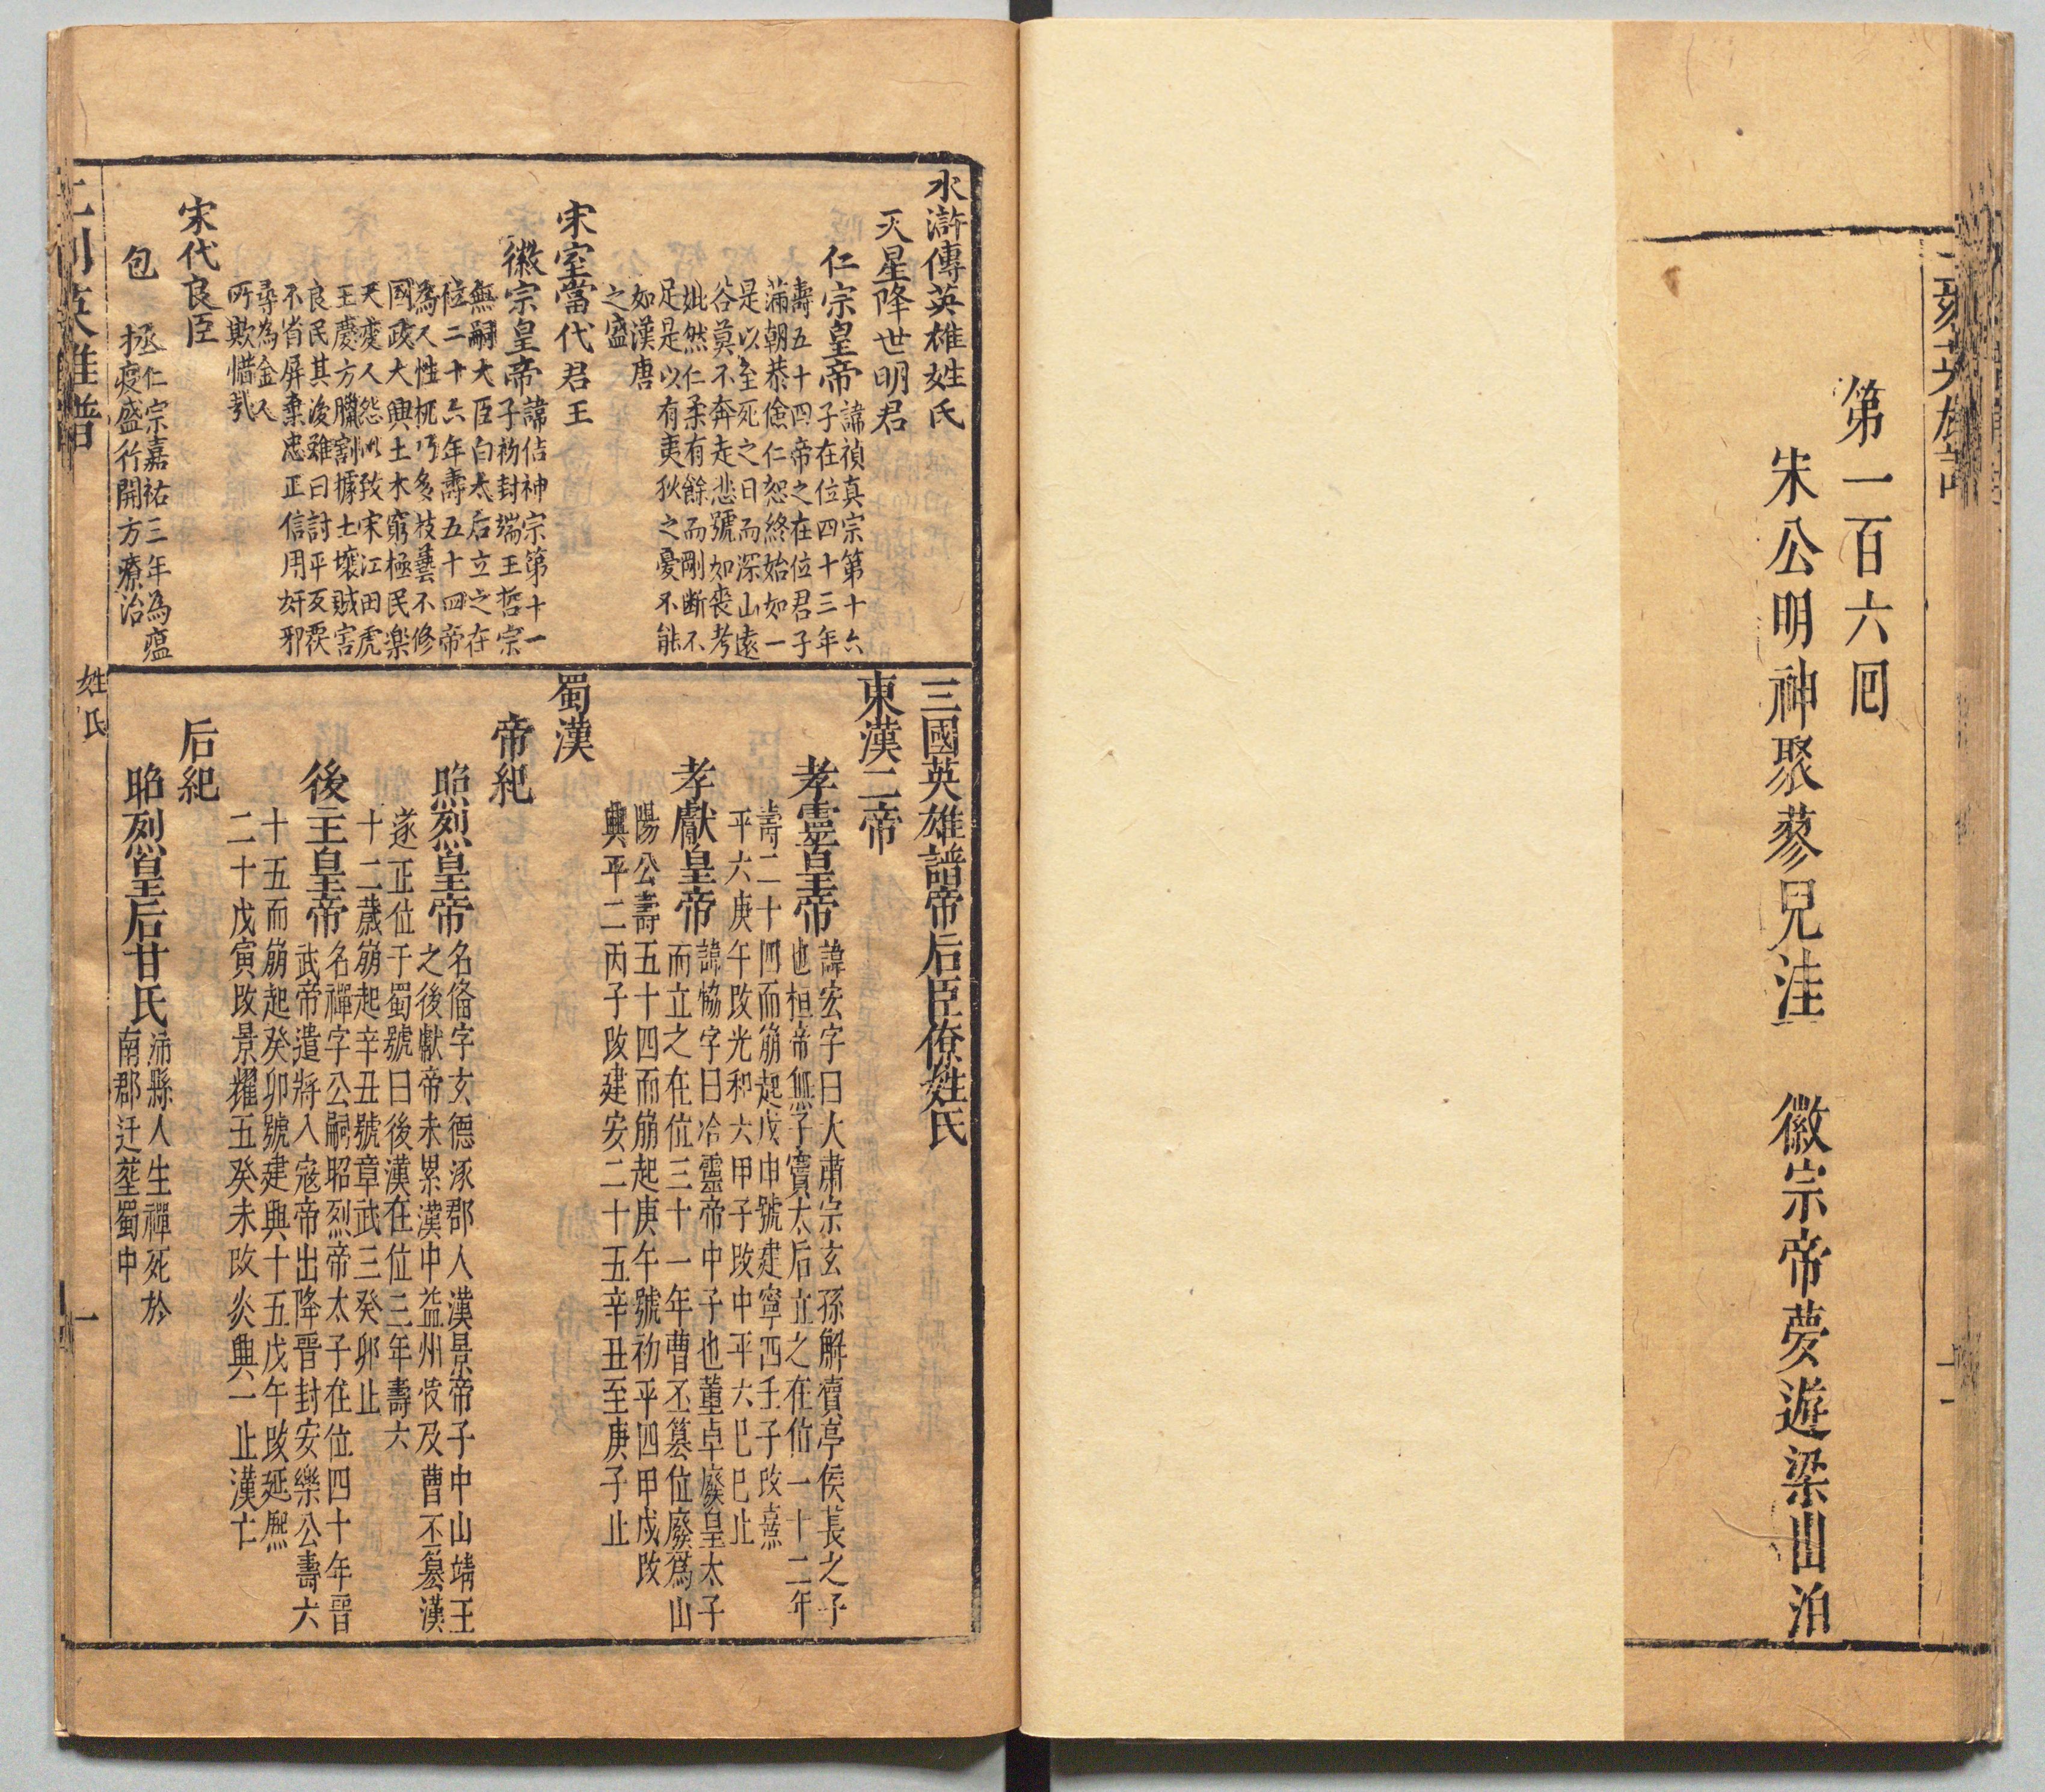 第一百六回
宋公明神聚蓼兒洼　徽宗帝夢遊梁山泊
水滸傳英雄姓氏
天星降世明君
仁宗皇帝
諱禎真宗第十六
子在位四十三年
壽五十四帝之在位君子
滿朝恭儉仁恕終始如一
是以至死之日而深山遠
谷莫不奔走悲號如喪考
妣然仁柔有餘而剛斷不
足是以有夷狄之憂不能
如漢唐
之盛
宋室當代君王
徽宗皇帝
諱佶神宗第十一
子初封端王哲宗
無嗣大臣白太后立之在
位二十六年壽五十四帝
為人性机巧多技藝不修
國政大興土木窮極民樂
天變人怨以致宋江田虎
王慶方臘割據土壤賊害
良民其後雖曰討平反戾
不省屏棄忠正信用奸邪
尋為金人
所欺惜哉
宋代良臣
包　拯
仁宗嘉祐三年為瘟
疫盛行開方療治
三國英雄譜帝后臣僚姓氏
東漢二帝
孝靈皇帝
諱宏字曰大肅宗玄孫解瀆亭侯萇之子
也桓帝無子竇太后立之在位一十二年
壽二十四而崩起戊申號建寧西壬子改熹
平六庚午改光和六甲子改中平六己巳止
孝獻皇帝
諱恊字曰冾靈帝中子也董卓廢皇太子
而立之在位三十一年曹丕篡位廢爲山
陽公壽五十四而崩起庚午號初平四甲戌改
興平二丙子改建安二十五辛丑至庚子止
蜀漢
帝紀
照烈皇帝
名俻字玄德涿郡人漢景帝子中山靖王
之後獻帝未累漢中益州伎及曹丕篡漢
遂正位于蜀號曰後漢在位三年壽六
十二歲崩起辛丑號章武三癸卯止
後主皇帝
名禪字公嗣昭烈帝太子在位四十年晉
武帝遣將入寇帝出降晉封安樂公壽六
十五而崩起癸卯號建興十五戊午改延熙
二十戊寅改景耀五癸未改炎興一止漢亡
后紀
昭烈皇后甘氏
沛縣人生禪死於
南郡迁塟蜀中
姓氏
一